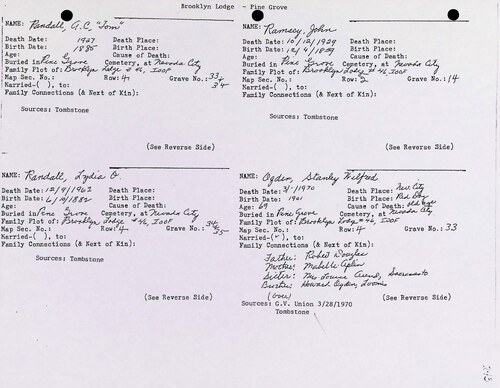 Brooklyn Lodge - Pine Grove
NAME: Randall, A.C. "Tom"
Death Date: 1927 Death Place:
Birth Date: 1885 Birth Place:
Age: Cause of Death:
Buried in Pine Grove Cemetery, at Nevada City
Family Plot of: Brooklyn Lodge #46, IOOF
Map Sec. No.: Row: 4 Grave No.: 33, 34
Married-( ), to:
Family Connections (& Next of Kin):
Sources: Tombstone
(See Reverse Side)
NAME: Ramsey, John
Death Date: 10/12/1929 Death Place:
Birth Date: 12/9/1859 Birth Place:
Age: Cause of Death:
Buried in Pine Grove Cemetery, at Nevada City
Family Plot of: Brooklyn Lodge #46, IOOF
Map Sec. No.: Row: 2 Grave No.: 14
Married-( ), to:
Family Connections (& Next of Kin):
Sources: Tombstone
(See Reverse Side)
NAME: Randall, Lydia O.
Death Date: 12/9/1962 Death Place:
Birth Date: 6/10/1882 Birth Place:
Age: Cause of Death:
Buried in Pine Grove Cemetery, at Nevada City
Family Plot of: Brooklyn Lodge #46, IOOF
Map Sec. No.: Row: 4 Grave No.: 35
Married-( ), to:
Family Connections (& Next of Kin):
Sources: Tombstone
(See Reverse Side)
NAME: Ogden, Stanley Wilfred
Death Date: 3/-/1970 Death Place: Nev. City
Birth Date: 1901 Birth Place: Red Dog
Age: 69 Cause of Death: old age
Buried in Pine Grove Cemetery, at Nevada City
Family Plot of: Brooklyn Lodge #46, IOOF
Map Sec. No.: Row: 4 Grave No.: 33
Married-( ), to:
Family Connections (& Next of Kin):
Father: Robert Douglas
Mother: Mabelle
Sister: Mrs. Louise Sacramento
Brother: Howard Ogden, Loomis
(over) (See Reverse Side)
Sources: G.V. Union 3/28/1970
Tombstone